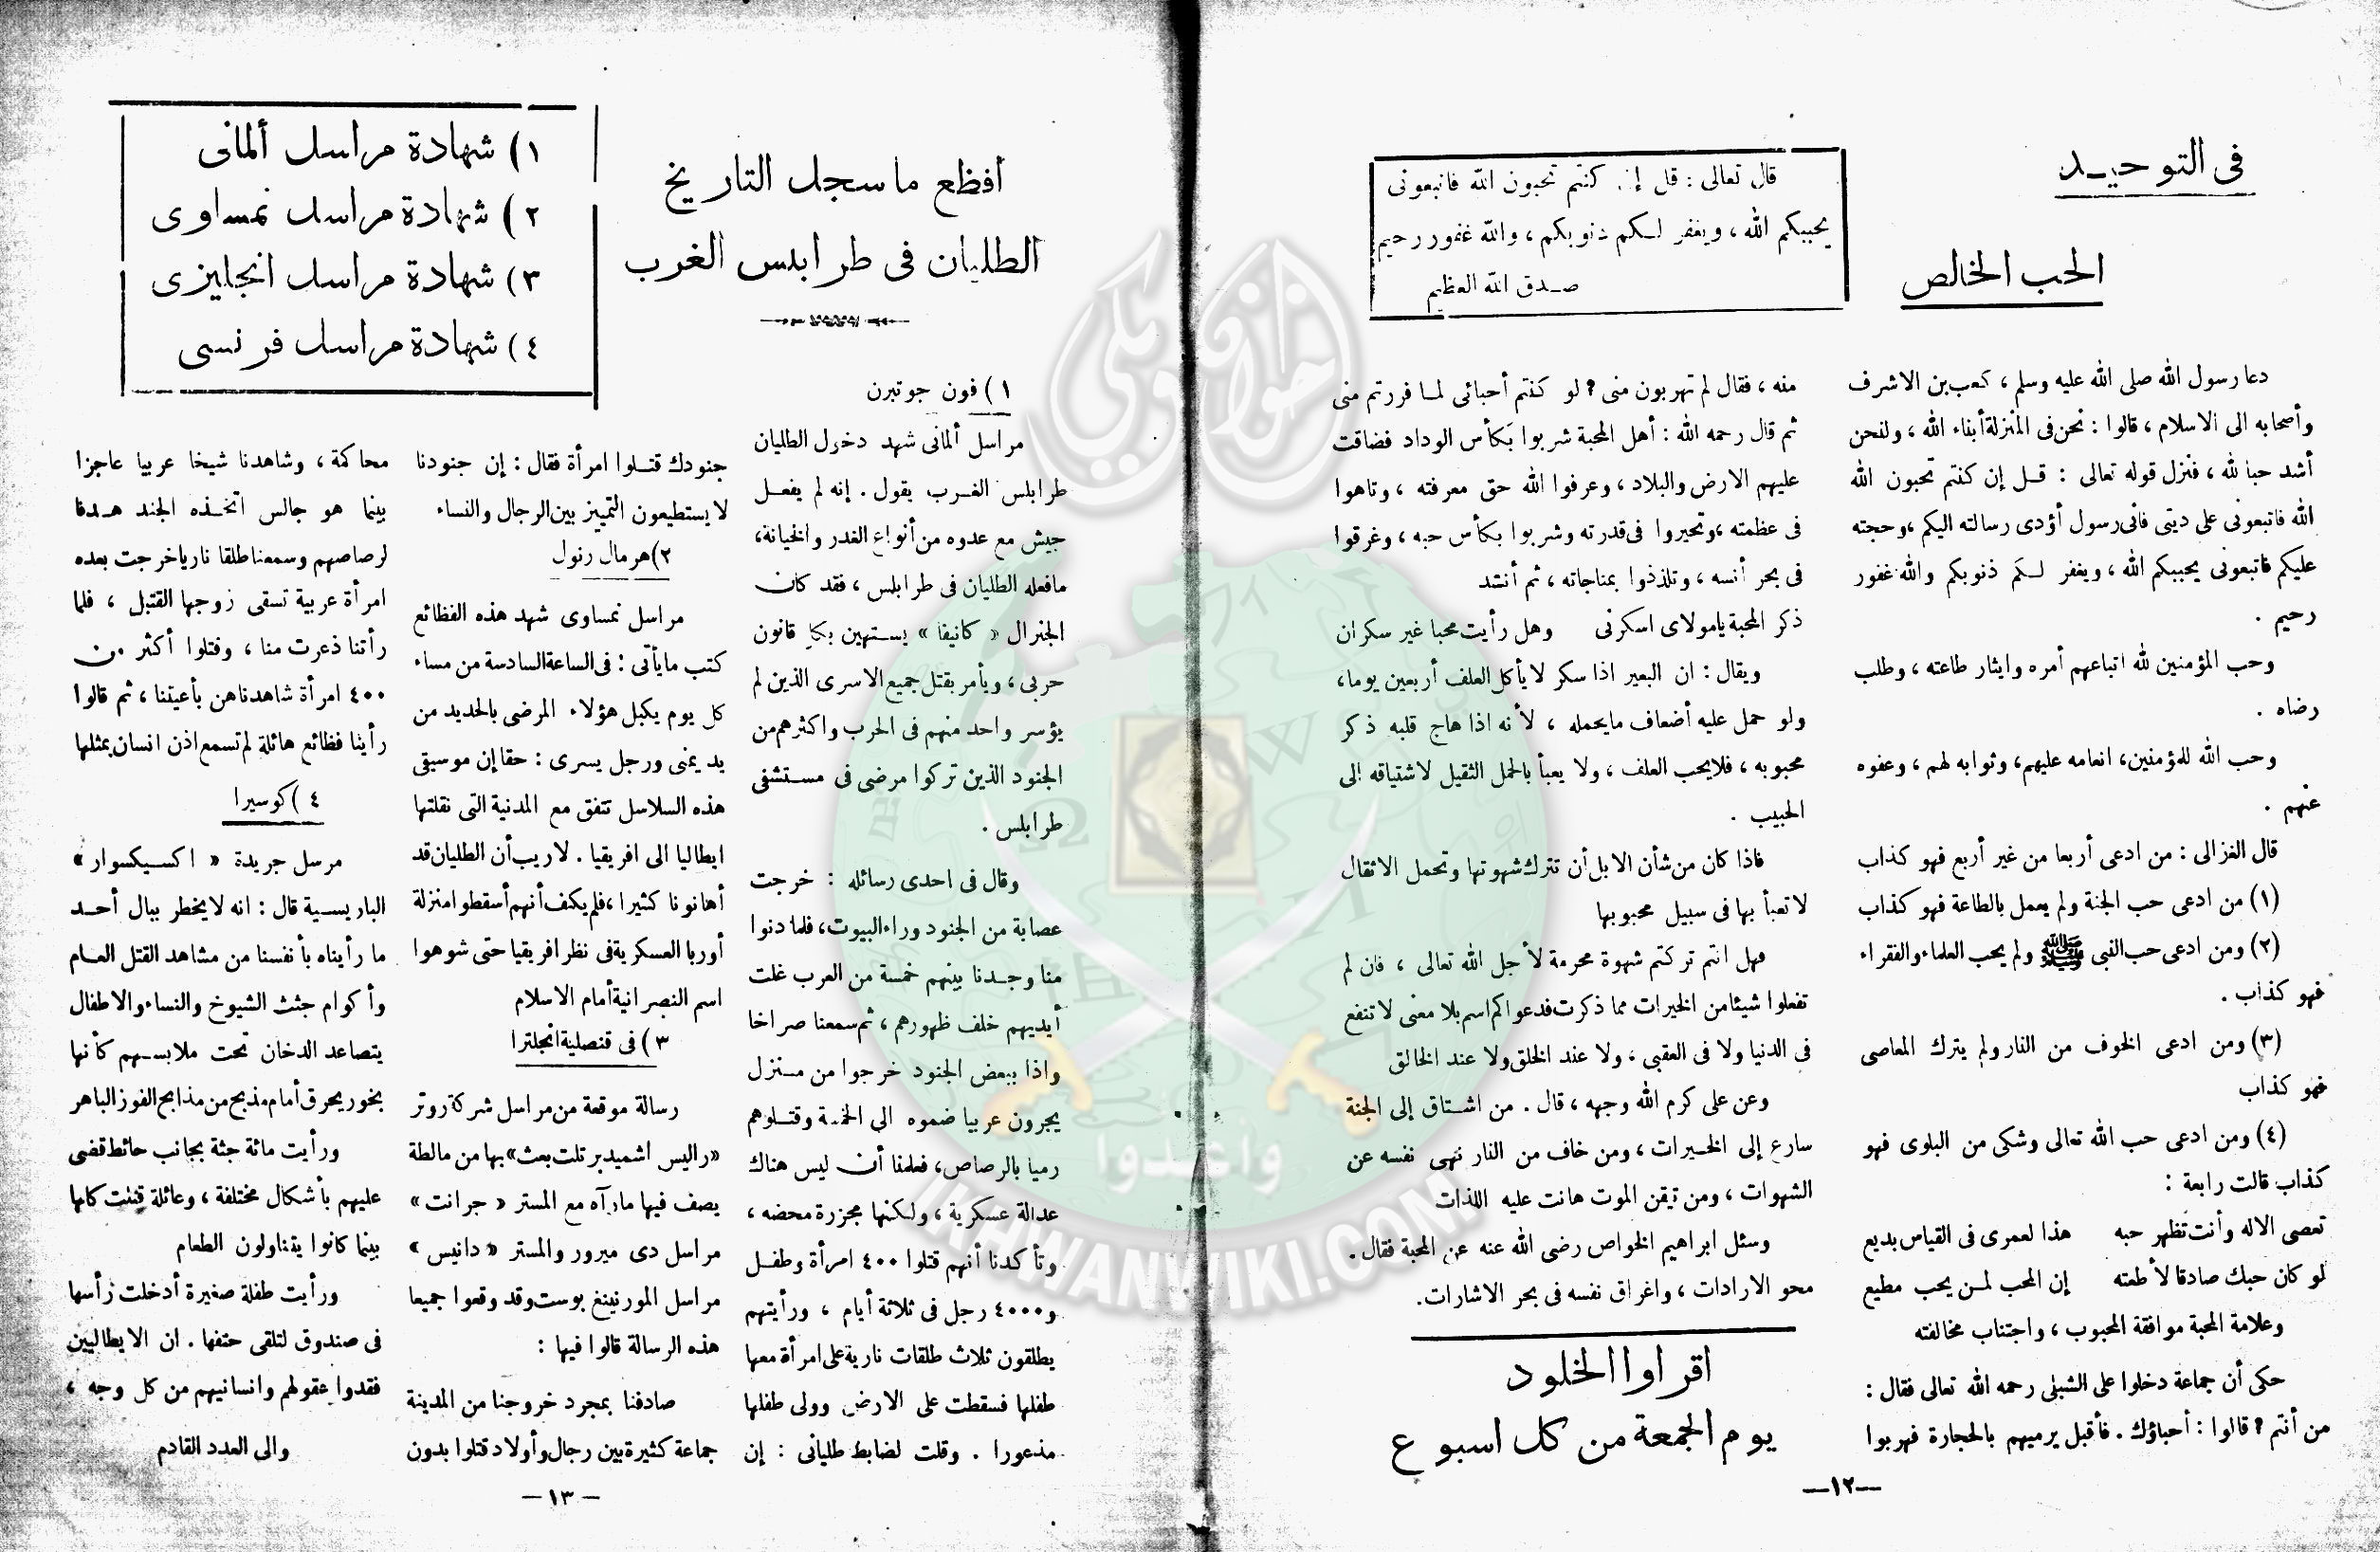 فى التوحيـد
الحب الخالص
قال تعالى : قل إن كنتم تحبون الله فاتبعونى
يحببكم الله ، ويغفر لـكم ذنوبكم ، والله غفور رحيم
صـدق الله العظيم
دعا رسول الله صلى الله عليه وسلم ، كعب بن الاشرف
وأصحابه الى الاسلام ، قالوا : نحن فى المنزلة أبناء الله ، ولنحن
أشد حبا لله ، فنزل قوله تعالى : قـل إن كنتم تحبون الله
الله فاتبعونى على دينى فانى رسول أؤدى رسالته اليكم ، وحجته
عليكم فاتبعونى يحببكم الله ، ويغفر لـكم ذنوبكم والله غفور
رحيم .
وحب المؤمنين لله اتباعهم أمره وايثار طاعته ، وطلب
رضاه .
وحب الله للمؤمنين، انعامه عليهم، وثوابه لهم ، وعفوه
عنهم .
قال الغزالى : من ادعى أربعا من غير أربع فهو كذاب
(١) من ادعى حب الجنة ولم يعمل بالطاعة فهو كذاب
(٢) ومن ادعى حب النبى ﷺ ولم يحب العلماء والفقراء
فهو كذاب .
(٣) ومن ادعى الخوف من النار ولم يترك المعاصى
فهو كذاب
(٤) ومن ادعى حب الله تعالى وشكى من البلوى فهو
كذاب قالت رابعة :
تعصى الاله وأنت تظهر حبه هذا لعمرى فى القياس بديع
لو كان حبك صادقا لأطعته إن المحب لمـن يحب مطيع
وعلامة المحبة موافقة المحبوب ، واجتناب مخالفته
حكى أن جماعة دخلوا على الشبلى رحمه الله تعالى فقال :
من أنتم ؟ قالوا : أحباؤك . فأقبل يرميهم بالحجارة فهربوا
منه ، فقال لم تهربون منى ؟ لو كنتم أحبائى لمـا فررتم منى
ثم قال رحمه الله : أهل المحبة شربوا بكأس الوداد فضاقت
عليهم الارض والبلاد ، وعرفوا الله حق معرفته ، وتاهوا
فى عظمته ، وتحيروا فى قدرته وشربوا بكأس حبه ، وغرقوا
فى بحر أنسه ، وتلذذوا بمناجاته ، ثم أنشد
ذكر المحبة يا مولاى اسكرنى وهل رأيت محبا غير سكران
ويقال : ان البعير اذا سكر لا يأكل العلف أربعين يوما،
ولو حمل عليه أضعاف ما يحمله ، لأنه اذا هاج قلبه ذكر
محبوبه ، فلا يحب العلف ، ولا يعبأ بالحمل الثقيل لاشتياقه الى
الحبيب .
فاذا كان من شأن الابل أن تترك شهوتها وتحمل الاثقال
لا تعبأ بها فى سبيل محبوبها
فهل انتم تركتم شهوة محرمة لأجل الله تعالى ، فان لم
تفعلوا شيئا من الخيرات مما ذكرت فدعواكم اسم بلا معنى لا تنفع
فى الدنيا ولا فى العقبى ، ولا عند الخلق ولا عند الخالق
وعن على كرم الله وجهه ، قال . من اشـتاق إلى الجنة
سارع إلى الخيرات ، ومن خاف من النار نهى نفسه عن
الشهوات ، ومن تيقن الموت هانت عليه اللذات
وسئل ابراهيم الخواص رضى الله عنه عن المحبة فقال .
محو الارادات ، واغراق نفسه فى بحر الاشارات.
اقراوا الخلود
يوم الجمعة من كل اسبوع
—١٢—
أفظع ما سجل التاريخ
الطليان فى طرابلس الغرب
١) شهادة مراسل ألمانى
٢) شهادة مراسل نمساوى
٣) شهادة مراسل انجليزى
٤) شهادة مراسل فرنسى
١) فون جوتبرن
مراسل ألمانى شهد دخول الطليان
طرابلس الغـرب يقول . إنه لم يفعـل
جيش مع عدوه من أنواع الغدر والخيانة،
مافعله الطليان فى طرابلس ، فقد كان
الجنرال « كانيفا » يسـتهين بكل قانون
حربى ، ويأمر بقتل جميع الاسرى الذين لم
يؤسر واحد منهم فى الحرب واكثرهم من
الجنود الذين تركوا مرضى فى مسـتشفى
طرابلس .
وقال فى احدى رسائله : خرجت
عصابة من الجنود وراء البيوت، فلما دنوا
منا وجـدنا بينهم خمسة من العرب غلت
أيديهم خلف ظهورهم ، ثم سمعنا صراخا
واذا ببعض الجنود خرجوا من مـنزل
يجرون عربيا ضموه الى الخمسة وقتـلوهم
رميا بالرصاص، فعلمنا أن ليس هناك
عدالة عسكرية ، ولكنها مجزرة محضه ،
وتأكدنا أنهم قتلوا ٤٠٠ امرأة وطفـل
و ٤٠٠٠ رجل فى ثلاثة أيام ، ورأيتهم
يطلقون ثلاث طلقات نارية على امرأة معها
طفلها فسقطت على الارض وولى طفلها
مذعورا . وقلت لضابط طليانى : إن
جنودك قتـلوا امرأة فقال : إن جنودنا
لا يستطيعون التمييز بين الرجال والنساء
٢) هرمال رنول
مراسل نمساوى شهد هذه الفظائع
كتب ما يأتى : فى الساعة السادسة من مساء
كل يوم يكبل هؤلاء المرضى بالحديد من
يد يمنى ورجل يسرى : حقا إن موسيقى
هذه السلاسل تتفق مع المدنية التى نقلتها
ايطاليا الى افريقيا . لا ريب أن الطليان قد
أهانونا كثيرا ، فلم يكف أنهم أسقطوا منزلة
أوربا العسكرية فى نظر افريقيا حتى شوهوا
اسم النصرانية أمام الاسلام
٣) فى قنصلية انجلترا
رسالة موقعة من مراسل شركة روتر
«راليس اشميدبرتلت بعث» بها من مالطة
يصف فيها مارآه مع المستر « جرانت »
مراسل دى ميرور والمستر « دانيس »
مراسل المورنينغ بوست وقد وقعوا جميعا
هذه الرسالة قالوا فيها :
صادفنا بمجرد خروجنا من المدينة
جماعة كثيرة بين رجال وأولاد قتلوا بدون
محاكمة ، وشاهدنا شيخا عربيا عاجزا
بينما هو جالس اتخـذه الجند هـدفا
لرصاصهم وسمعنا طلقا ناريا خرجت بعده
امرأة عربية تسقى زوجها القتيل ، فلما
رأتنا ذعرت منا ، وقتلوا أكثر من
٤٠٠ امرأة شاهدناهن بأعيننا ، ثم قالوا
رأينا فظائع هائلة لم تسمع اذن انسان بمثلها
٤) كوسيرا
مرسل جريدة « اكسـيكسوار »
الباريسـية قال : انه لا يخطر ببال أحـد
ما رأيناه بأنفسنا من مشاهد القتل العـام
وأكوام جثث الشيوخ والنساء والاطفال
يتصاعد الدخان تحت ملابسـهم كأنها
بخور يحرق أمام مذبح من مذابح الفوز الباهر
ورأيت مائة جثة بجانب حائط قضى
عليهم بأشكال مختلفة ، وعائلة قتلت كلها
بينما كانوا يتناولون الطعام
ورأيت طفلة صغيرة أدخلت رأسها
فى صندوق لتلقى حتفها . ان الايطاليين
فقدوا عقولهم وانسانيهم من كل وجه ،
والى العدد القادم
—١٣—
إخوان ويكي
وأعدوا
IKHWANWIKI.COM